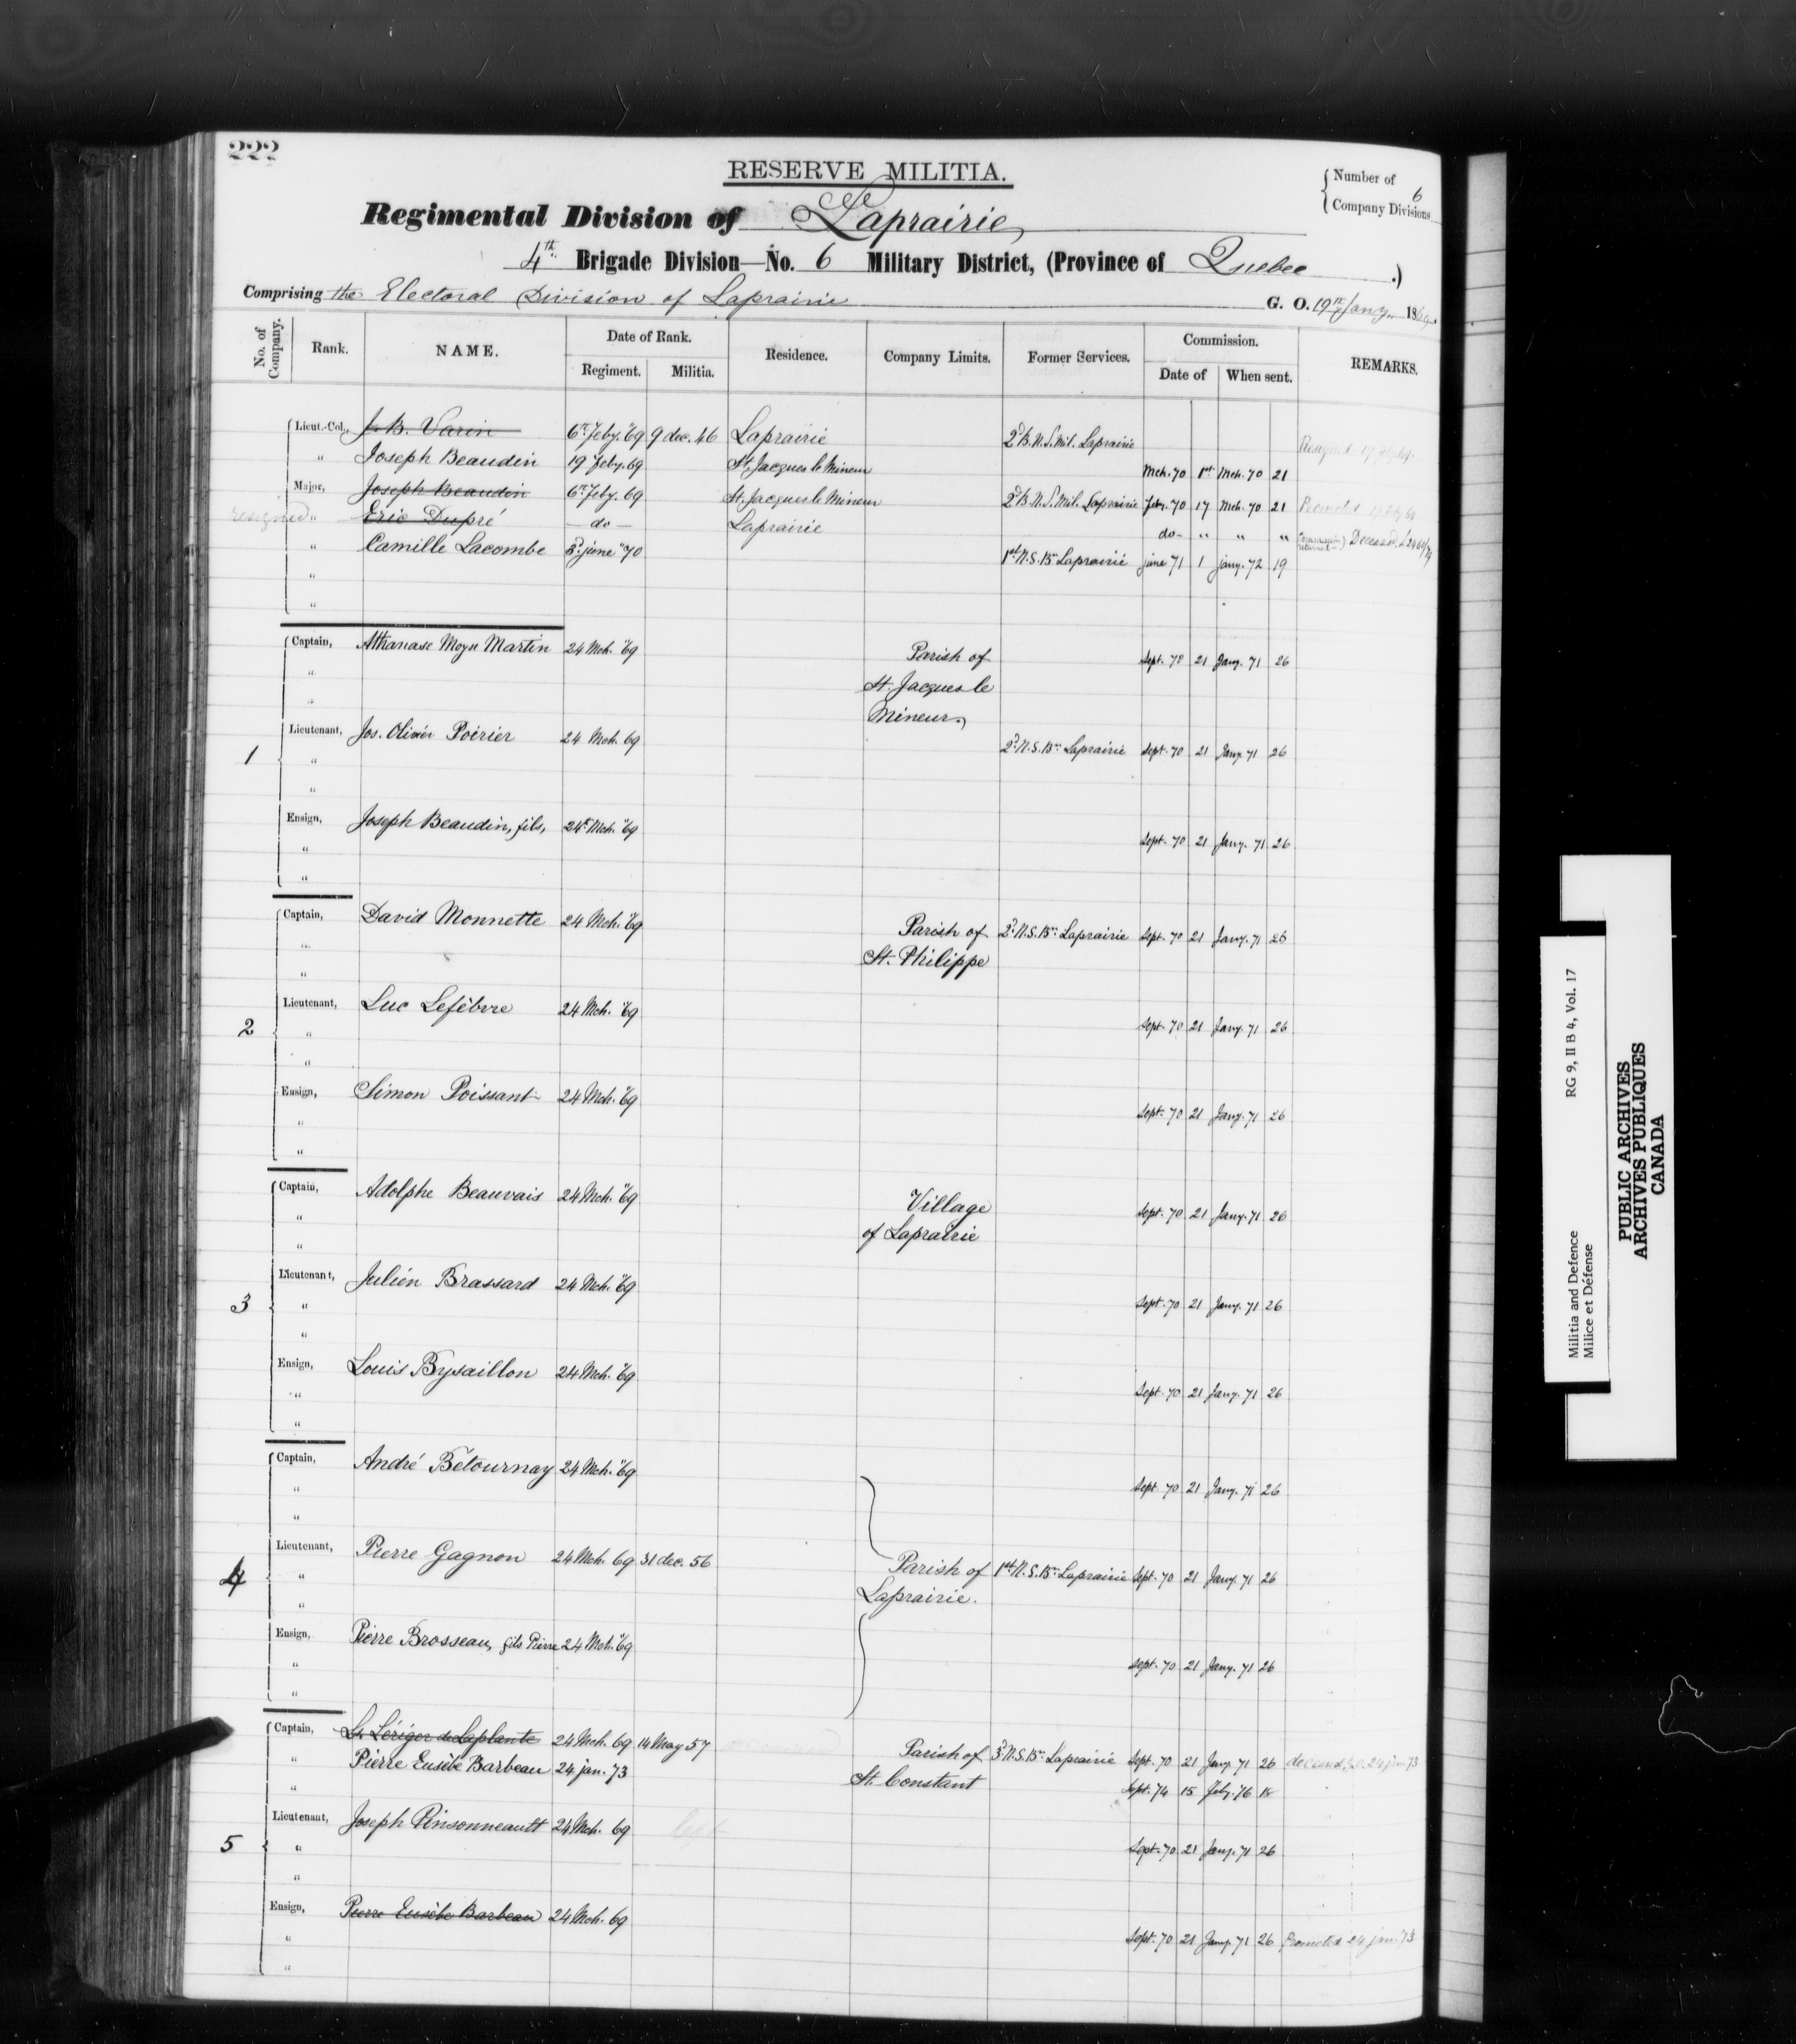 222
RESERVE MILITIA.
Number of Company Divisions 6
Regimental Division of Laprairie
4th Brigade Division—No. 6 Military District, (Province of Quebec .)
Comprising the Electoral Division of Laprairie G. O. 19th Jany. 1869.
No. of Company. Rank. NAME. Date of Rank. Residence. Company Limits. Former Services. Commission. REMARKS.
Regiment. Militia. Date of When sent.
Lieut.-Col., J. B. Varin 6th Feby. "69 9 dec. 46 Laprairie 2d B. N. S. Mil. Laprairie Resigned 19 feby 69.
" Joseph Beaudin 19 Feby. 69 St. Jacques le Mineur Mch. 70 1st Mch. 70 21
Major, Joseph Beaudin 6th Feby. 69 St. Jacques le Mineur 2d B. N. S. Mil. Laprairie Feby. 70 17 Mch. 70 21 Promoted 19 feby 69
resigned " Eric Dupré — do — Laprairie do - " " " Deceased
" Camille Lacombe 3d june "70 1st N. S. Bn Laprairie june 71 1 jany. 72 19
"
"
Captain, Athanase Moyse Martin 24 Mch. "69 Parish of Sept. 70 21 Jany. 71 26
" St. Jacques le
" Mineur.
Lieutenant, Jos. Olivier Poirier 24 Mch. 69 2d N. S. Bn Laprairie Sept. 70 21 Jany. 71 26
1 "
"
Ensign, Joseph Beaudin, fils, 24th Mch. "69 Sept. 70 21 Jany. 71 26
"
"
Captain, David Monnette 24 Mch. "69 Parish of 2d N. S. Bn Laprairie Sept. 70 21 Jany. 71 26
" St. Philippe
"
Lieutenant, Luc Lefèbvre 24 Mch. "69 Sept. 70 21 Jany. 71 26
2 "
"
Ensign, Simon Poissant 24 Mch. "69 Sept. 70 21 Jany. 71 26
"
"
Captain, Adolphe Beauvais 24 Mch. "69 Village Sept. 70 21 Jany. 71 26
" of Laprairie
"
Lieutenant, Julien Brassard 24 Mch. "69 Sept. 70 21 Jany. 71 26
3 "
"
Ensign, Louis Bysaillon 24 Mch. "69 Sept. 70 21 Jany. 71 26
"
"
Captain, André Bétournay 24 Mch. "69 Sept. 70 21 Jany. 71 26
"
"
Lieutenant, Pierre Gagnon 24 Mch. 69 31 dec. 56 Parish of 1st N. S. Bn Laprairie Sept. 70 21 Jany. 71 26
4 " Laprairie.
"
Ensign, Pierre Brosseau, fils Pierre 24 Mch. "69 Sept. 70 21 Jany. 71 26
"
"
Captain, L. Lériger de Laplante 24 Mch. 69 14 May 57 Parish of 3d N. S. Bn Laprairie Sept. 70 21 Jany. 71 26 deceased, 24 jan. 73
" Pierre Eusèbe Barbeau 24 jan. 73 St. Constant Sept. 74 15 Feby. 76 18
"
Lieutenant, Joseph Pinsonneault 24 Mch. 69 left Sept. 70 21 Jany. 71 26
5 "
"
Ensign, Pierre Eusèbe Barbeau 24 Mch. 69 Sept. 70 21 Jany. 71 26 Promoted 24 jan. 73
"
"
Militia and Defence RG 9, II B 4, Vol. 17
Milice et Défense
PUBLIC ARCHIVES
ARCHIVES PUBLIQUES
CANADA